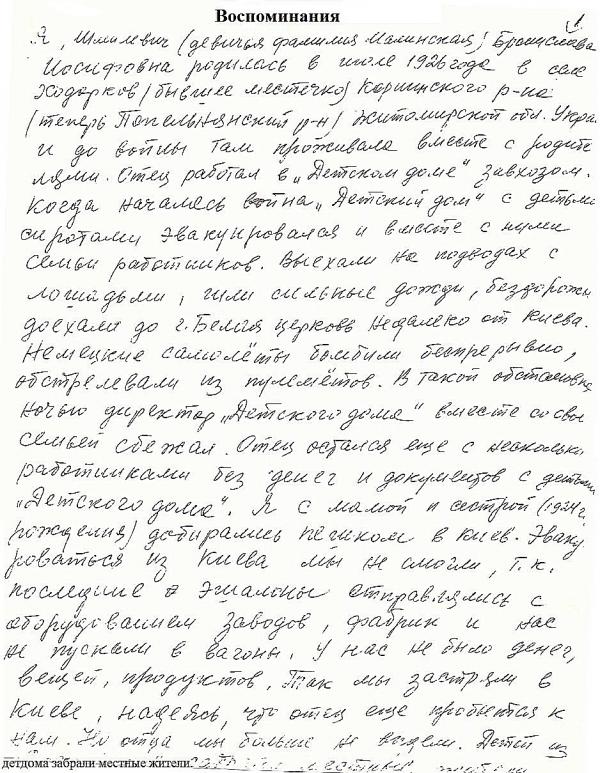 Воспоминания
1.
Я, Шмилевич (девичья фамилия Малинская) Бронислава
Иосифовна родилась в июле 1926 года в селе
Ходорков (бывшее местечко) Корнинского р-на
(теперь Попельнянский р-н) Житомирской обл. Укра
и до войны там проживала вместе с родите
лями. Отец работал в "Детском доме" завхозом.
Когда началась война "Детский дом" с детьми
сиротами эвакуировался и вместе с ними
семьи работников. Выехали на подводах с
лошадьми, шли сильные дожди, бездорожь
доехали до г. Белая церковь недалеко от Киева.
Немецкие самолёты бомбили беспрерывно,
обстрелевали из пулемётов. В такой обстановке
ночью директор "Детского дома" вместе со свое
семьей сбежал. Отец остался еще с нескольки
работниками без денег и документов с детьми
"Детского дома". Я с мамой и сестрой (1924 г.
рождения) добирались пешком в Киев. Эваку
роваться из Киева мы не смогли, т.к.
последние эшалоны отправлялись с
оборудованием заводов, фабрик и нас
не пускали в вагоны. У нас не было денег,
вещей, продуктов. Так мы застряли в
Киеве, надеясь, что отец еще пробьется к
нам. Но отца мы больше не видели. Детей из
детдома забрали местные жители.